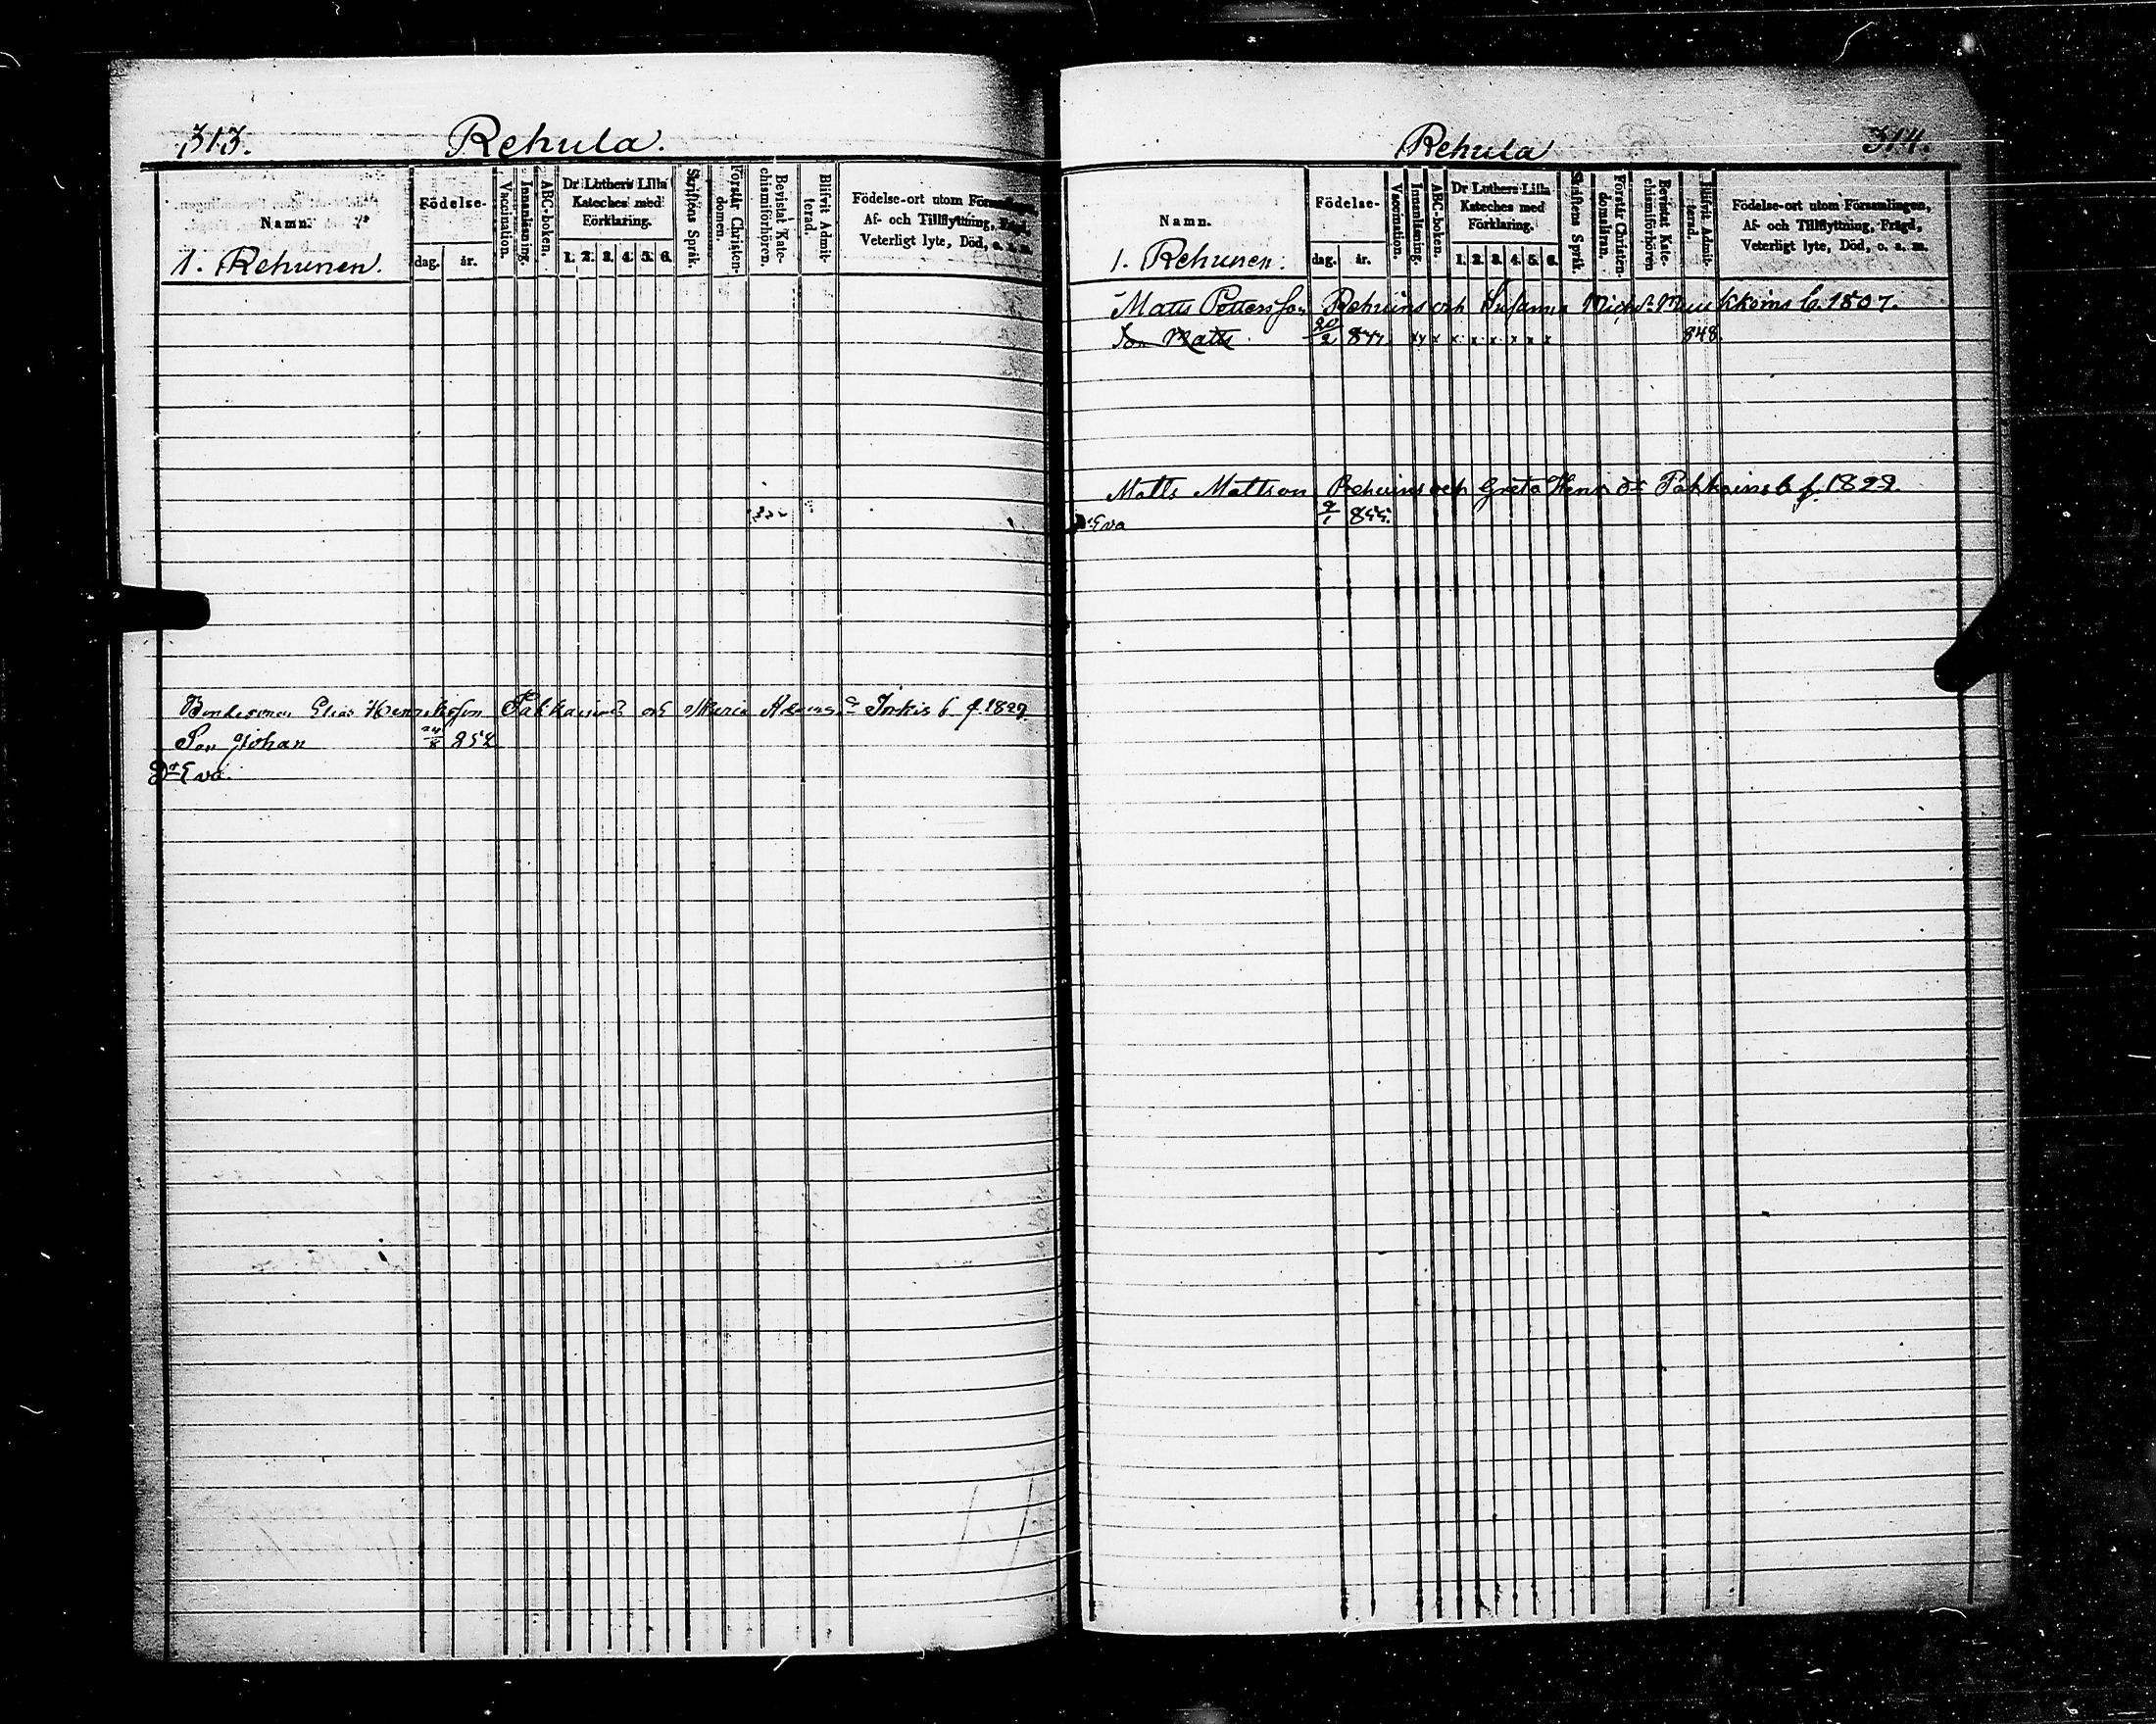 313.
Rehula.
Namn.
Födelse-
dag.
år.
Vaccination.
Innanläsning.
ABC-boken.
Dr Luthers Lilla
Kateches med
Förklaring.
1. 2. 3. 4. 5. 6.
Skriftens Språk.
Förstår Christen-
domen.
Bevistat Kate-
chismiförhören.
Blifvit Admit-
terad.
Födelse-ort utom Församlingen,
Af- och Tillflyttning, Frägd,
Veterligt lyte, Död, o. s. m.
1. Rehunen.
Elias Henriksson Pakkains och Maria b. f. 1829.
Son Johan 24/8 852
Dr Eva.
Rehula
314.
Namn.
Födelse-
dag. år.
Vaccination.
Innanläsning.
ABC-boken.
Dr Luthers Lilla
Kateches med
Förklaring.
1. 2. 3. 4. 5. 6.
Skriftens Språk.
Förstår Christen-
domsläran.
Bevistat Kate-
chismiförhören
Blifvit Admit-
terad.
Födelse-ort utom Församlingen,
Af- och Tillflyttning, Frägd,
Veterligt lyte, Död, o. s. m.
1. Rehunen.
Matts Pettersson Rehuins och Susanna Michsd. b. 1807.
Son Matts 20/2 x x x x x x x x 848.
Matts Mattson Rehuins och Greta Henr dr Pakkains b f. 1822.
Dr Eva 9/1 855.